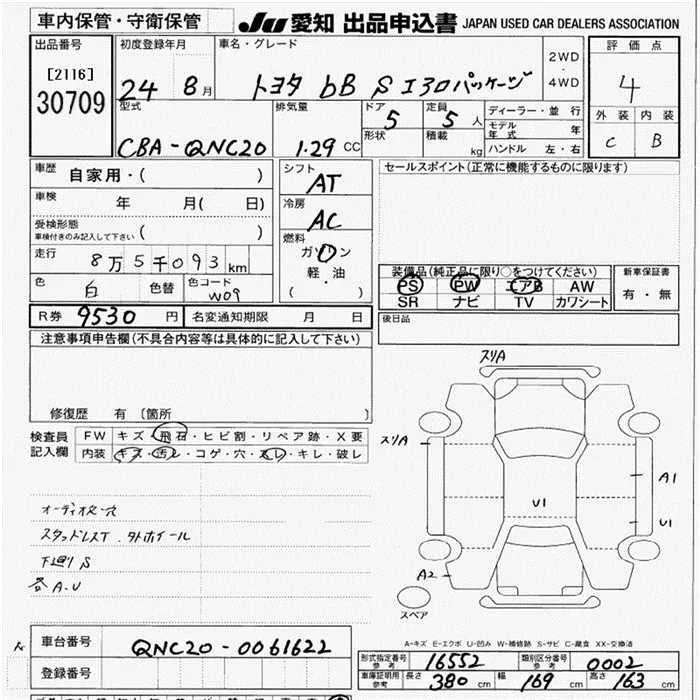 車内保管・守衛保管
JU 愛知 出品申込書 JAPAN USED CAR DEALERS ASSOCIATION
出品番号
[2116]
30709
初度登録年月
24 8月
車名・グレード
トヨタ bB S エアロパッケージ
2WD
・
4WD
評価点
4
外装 内装
C B
型式
CBA-QNC20
排気量
1.29 CC
ドア
5
形状
定員
5人
積載
kg
ディーラー・並行
モデル年式 年
ハンドル 左・右
車歴
自家用・( )
車検
年 月( 日)
受検形態
車検付きのみ記入して下さい ( )
走行
8万5千093km
色
白
色替
色コード
W09
シフト
AT
冷房
AC
燃料
ガソリン
軽・油
( )
セールスポイント(正常に機能するものに限ります)
装備品(純正品に限り○をつけてください)
PS PW エアB AW
SR ナビ TV カワシート
新車保証書
有・無
R券 9530 円
名変通知期限 月 日
後日品
注意事項申告欄(不具合内容等は具体的に記入して下さい)
修復歴 有 〔箇所
検査員
記入欄
FW キズ・飛石・ヒビ割・リペア跡・X要
内装 キズ・汚レ・コゲ・穴・スレ・キレ・破レ
オーディオ欠・穴
スタッドレスT.外ホイール
下廻りS
各A.U
スリA
スリA
A1
U1
U1
A2
スペア
A-キズ E-エクボ U-凹み W-補修跡 S-サビ C-腐食 XX-交換済
車台番号
QNC20-0061622
登録番号
形式指定番号
参考
16552
類別区分番号
参考
0002
車庫証明用
参考
長さ 380 cm
幅 169 cm
高さ 163 cm